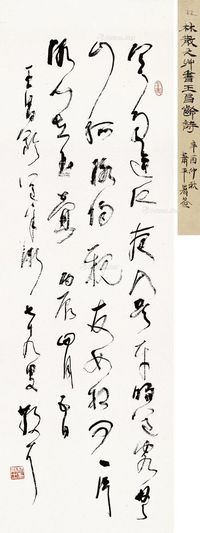 寒雨連江夜入吳平明送客楚
山孤洛陽親友如相問一片
冰心在玉壺 丙辰四月
王昌齡送辛漸 七十九叟散耳
林散之艸書王昌齡詩
辛酉仲秋
蕭平署簽